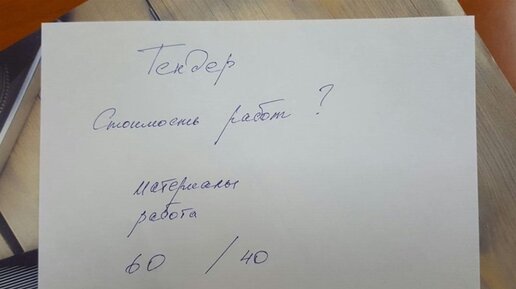 Тендер
Стоимость работ ?
материалы
работа
60 / 40